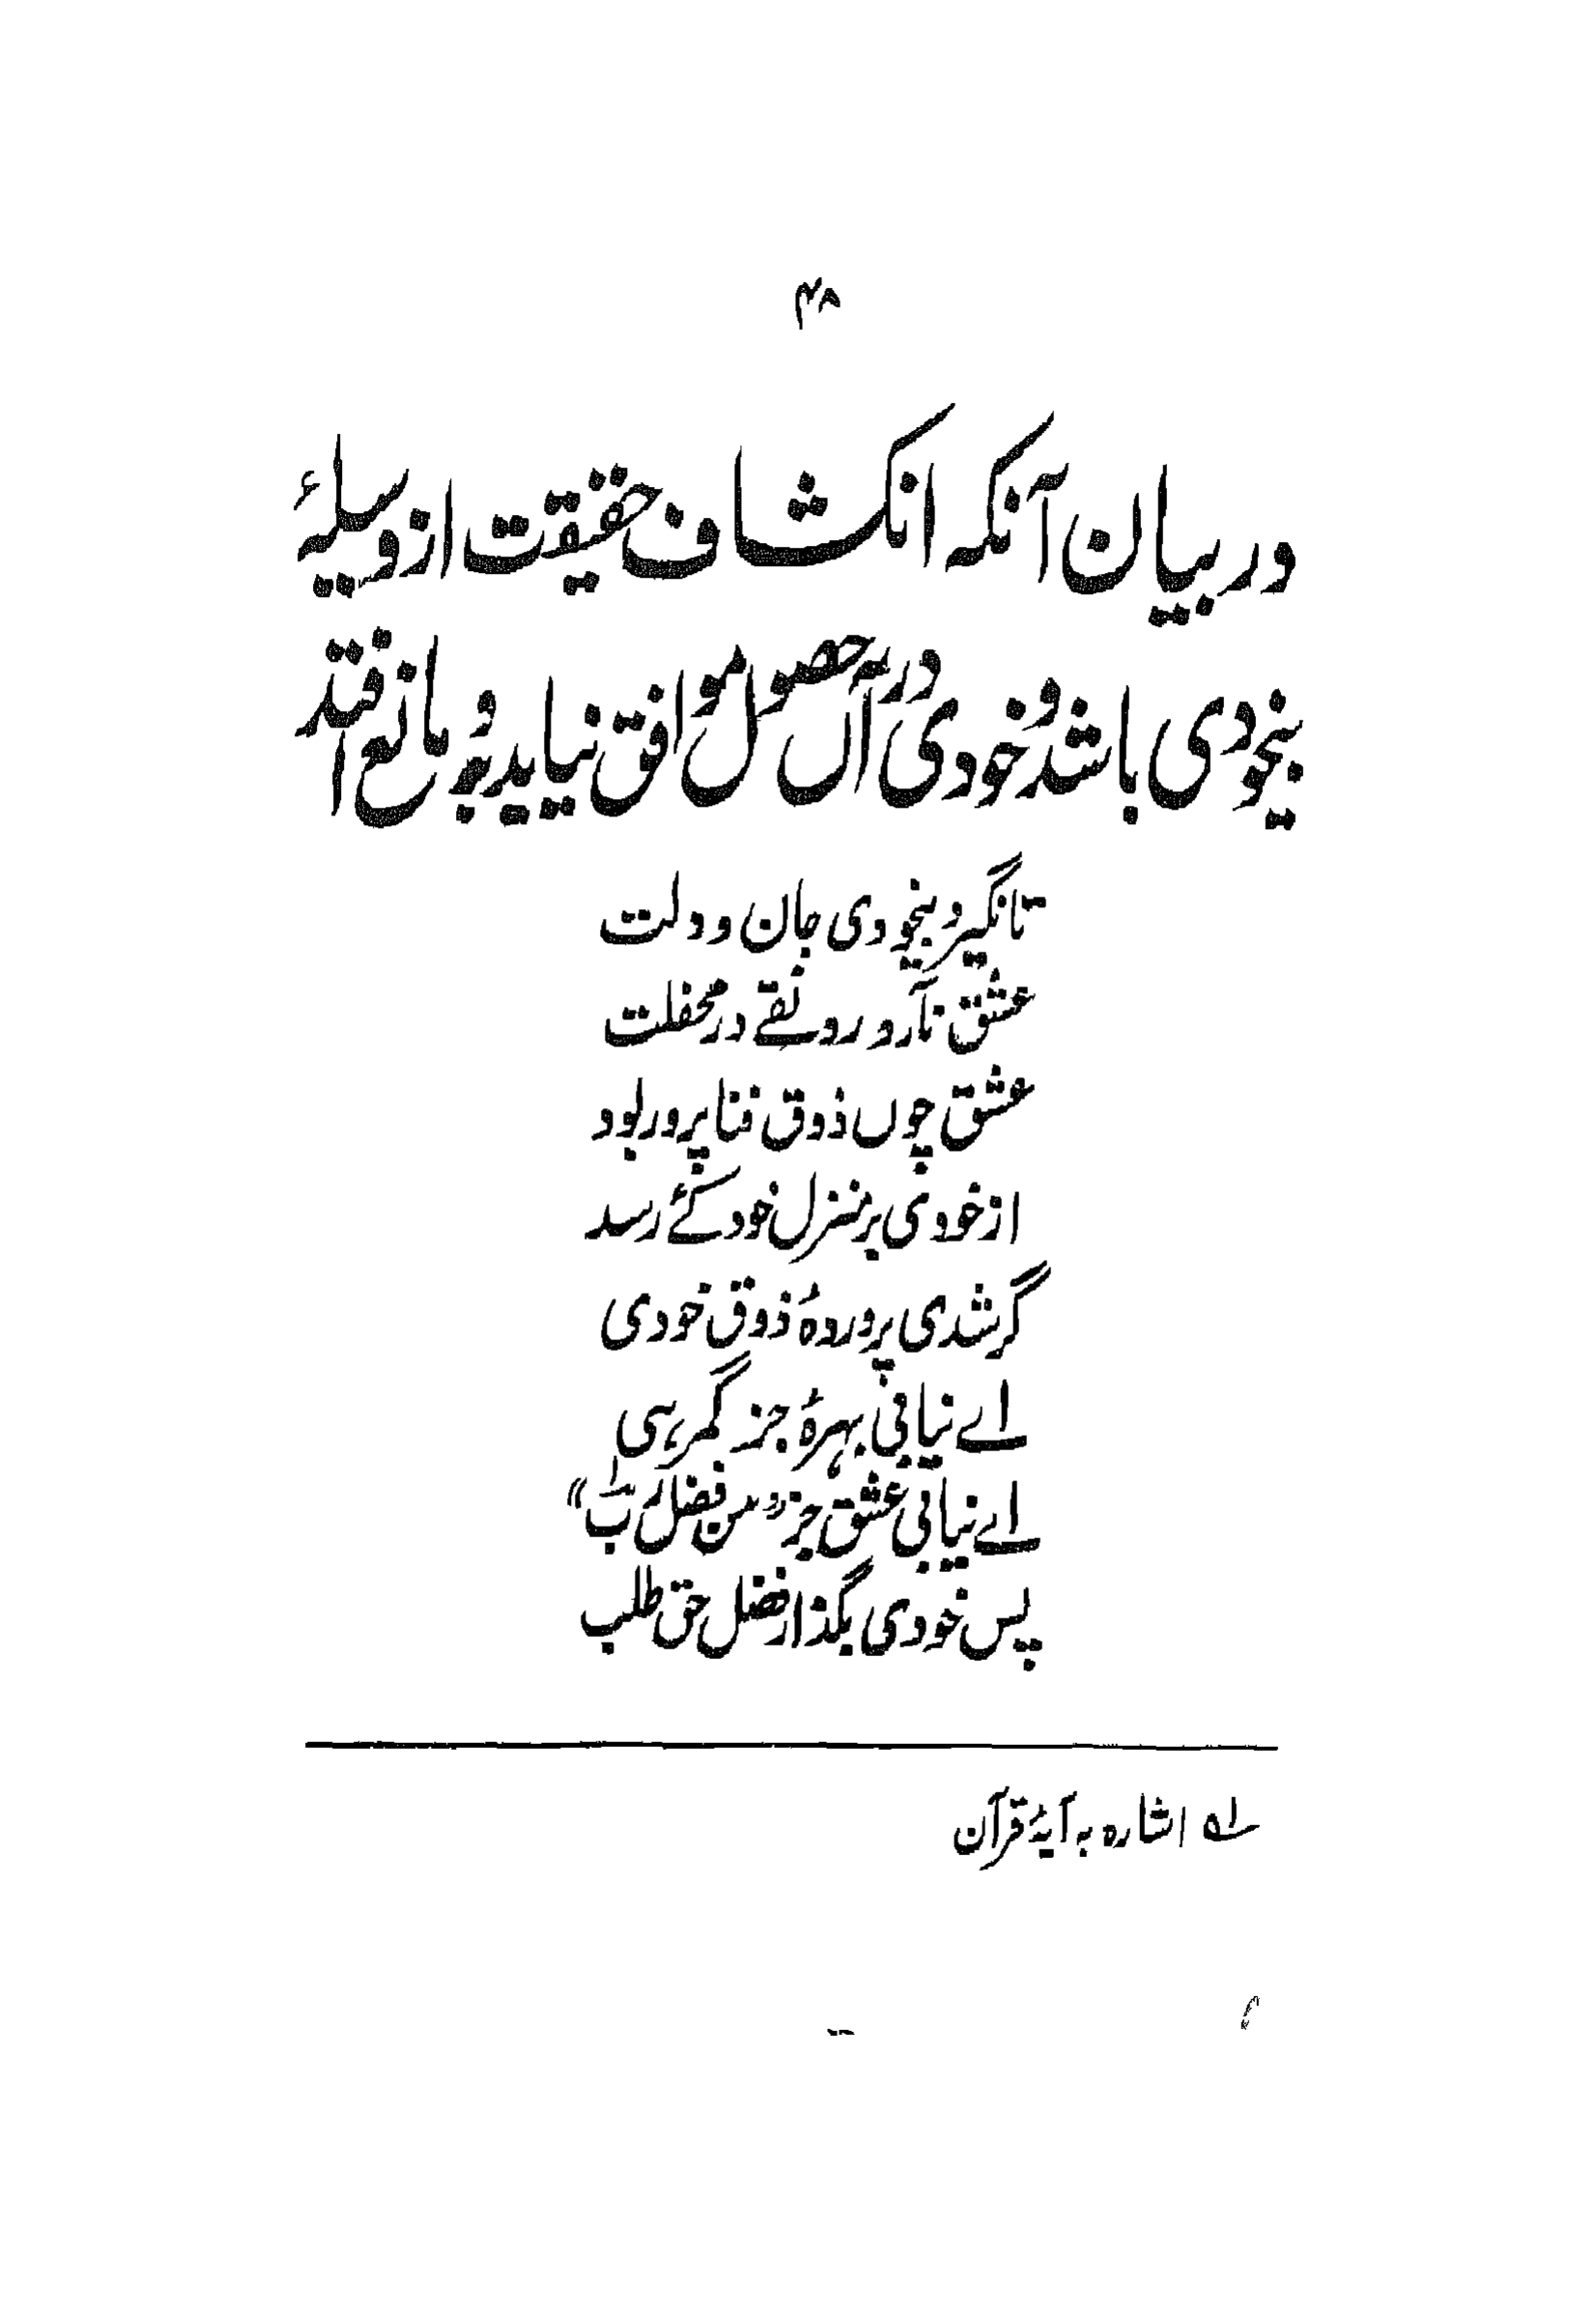 ۴۸
در بیان آنکہ انکشاف حقیقت از وسیلۂ
بیخودی باشد و خودی در بہ آں حصول موافق نیاید بود و مانع افتد
تا نگیرد بیخودی جان و دلت
عشق نآرد رونقے در محفلت
عشق چوں ذوق فنا پرور بود
از خودی بر منزل خود کے رسد
گر شدی پروردۂ ذوق خودی
اے نیابی بہرۂ جز گمرہی
اے نیابی عشق جز "من فضل رب"
پس خودی بگذار فضل حق طلب
لہ اشارہ بہ آیۂ قرآن